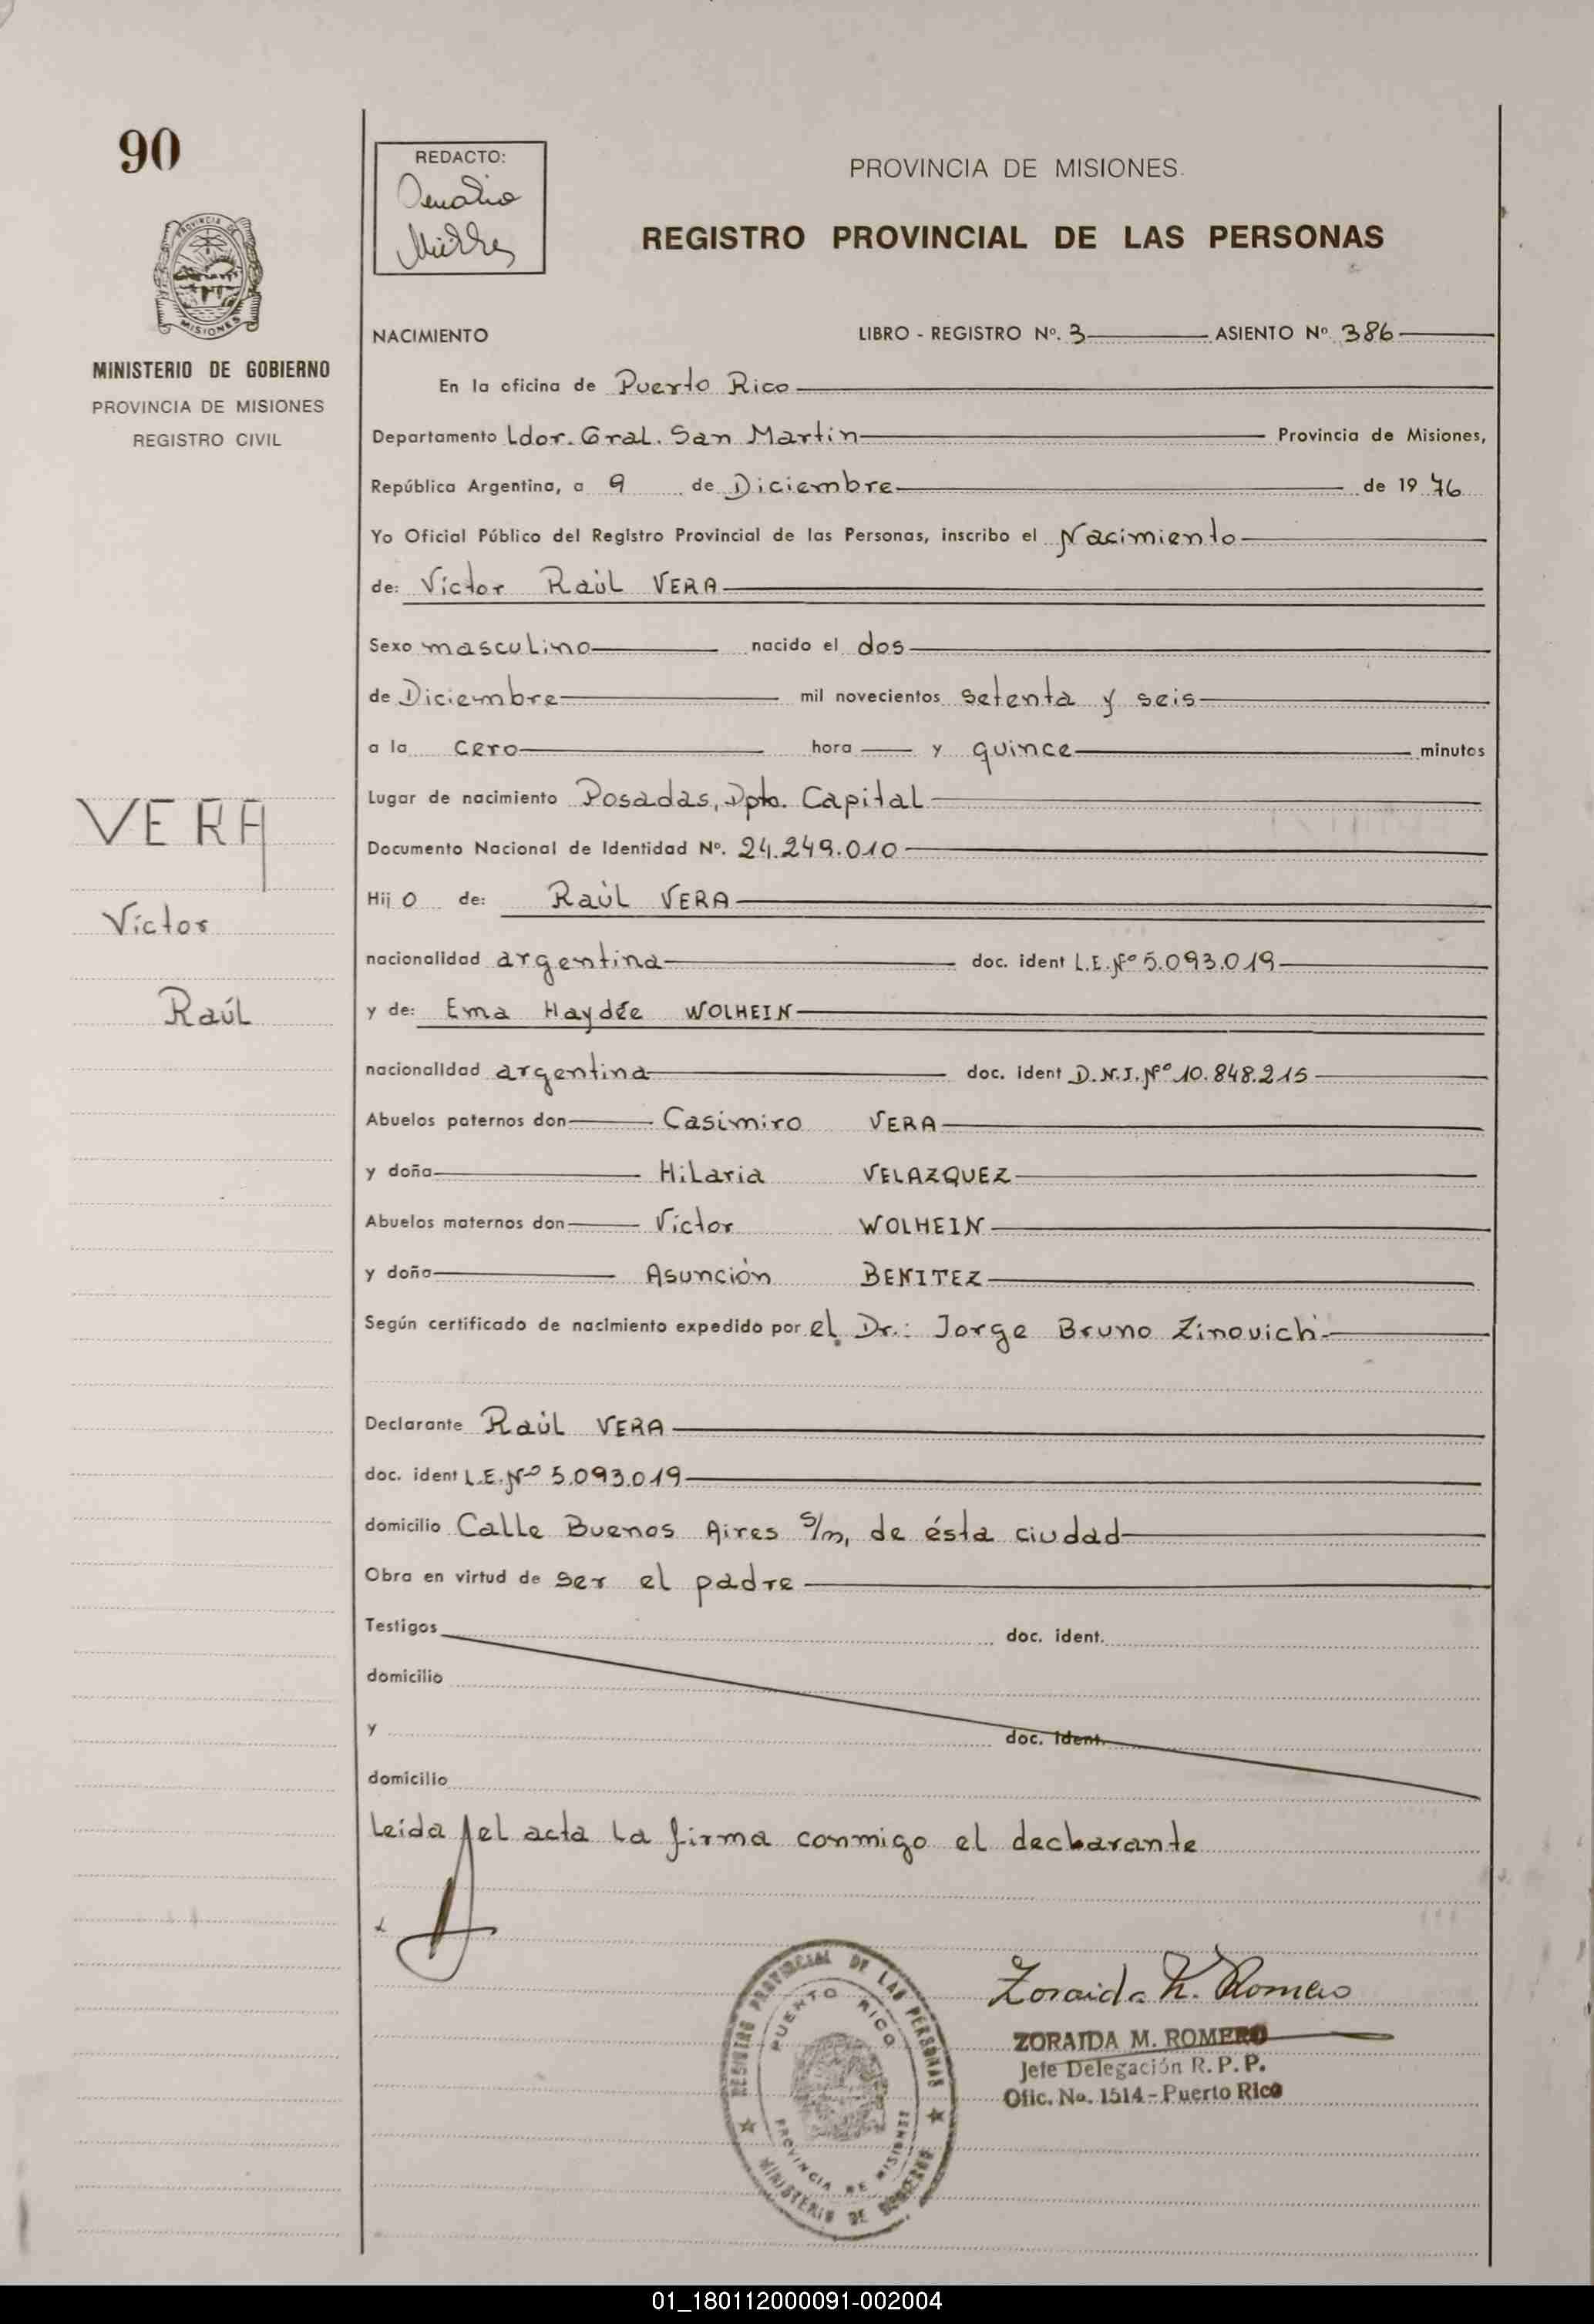 90
REDACTO:
PROVINCIA DE MISIONES.
REGISTRO PROVINCIAL DE LAS PERSONAS
PROVINCIA DE
MISIONES
MINISTERIO DE GOBIERNO
PROVINCIA DE MISIONES
REGISTRO CIVIL
NACIMIENTO LIBRO - REGISTRO Nº. 3 ASIENTO Nº 386
En la oficina de Puerto Rico
Departamento Ldor. Gral. San Martín Provincia de Misiones,
República Argentina, a 9 de Diciembre de 1976
Yo Oficial Público del Registro Provincial de las Personas, inscribo el Nacimiento
de: Víctor Raúl VERA
Sexo masculino nacido el dos
de Diciembre mil novecientos setenta y seis
a la cero hora y quince minutos
Lugar de nacimiento Posadas, Dpto. Capital
Documento Nacional de Identidad Nº. 24.249.010
Hijo de: Raúl VERA
nacionalidad argentina doc. ident L.E. Nº 5.093.019
y de: Ema Haydée WOLHEIN
nacionalidad argentina doc. ident D.N.I. Nº 10.848.215
Abuelos paternos don Casimiro VERA
y doña Hilaria VELAZQUEZ
Abuelos maternos don Víctor WOLHEIN
y doña Asunción BENITEZ
Según certificado de nacimiento expedido por el Dr.: Jorge Bruno Zinovich
Declarante Raúl VERA
doc. ident L.E. Nº 5.093.019
domicilio Calle Buenos Aires s/n, de ésta ciudad
Obra en virtud de ser el padre
Testigos doc. ident.
domicilio
y doc. ident.
domicilio
Leída el acta la firma conmigo el declarante
VERA
Víctor
Raúl
REGISTRO PROVINCIAL DE LAS PERSONAS
PUERTO RICO
PROVINCIA DE MISIONES
MINISTERIO DE GOBIERNO
Zoraida M. Romero
ZORAIDA M. ROMERO
Jefe Delegación R. P. P.
Ofic. No. 1514 - Puerto Rico
01_180112000091-002004